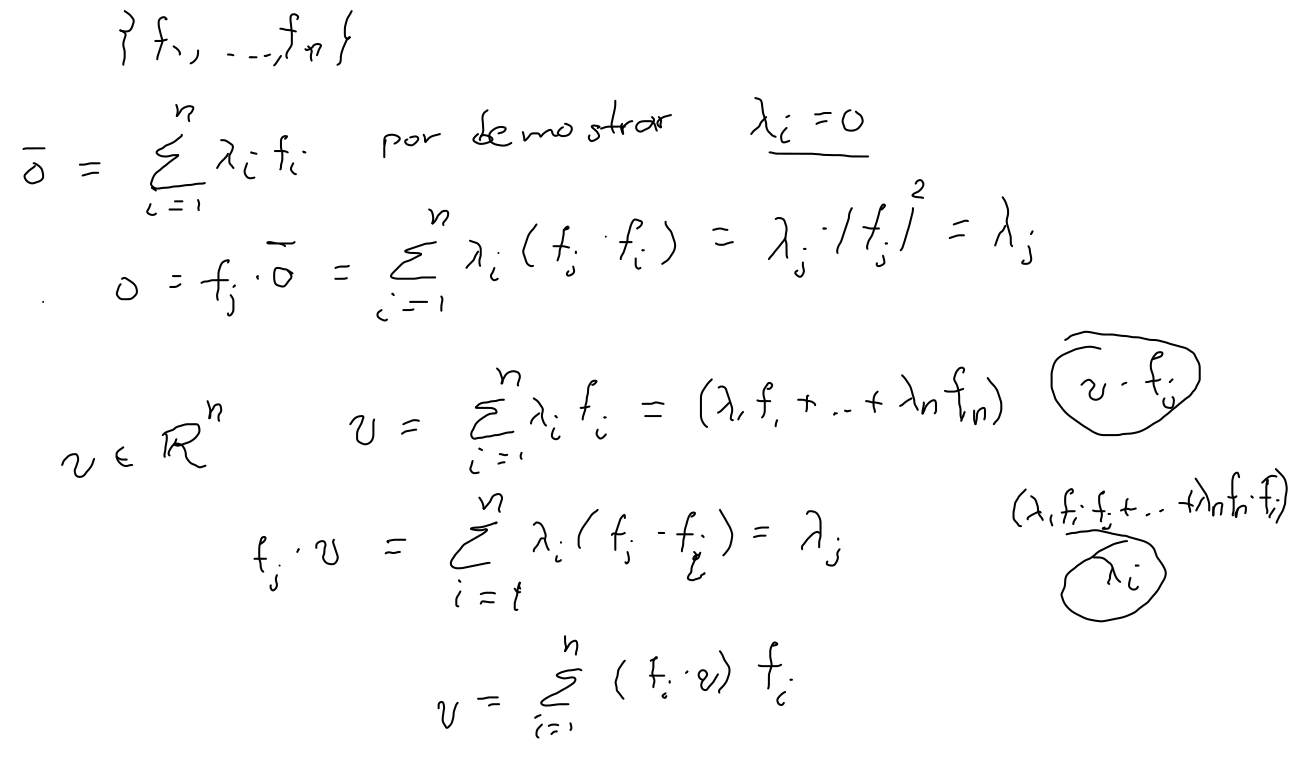 {f₁, ..., fₙ}
0̄ = ∑_{i=1}^{n} λᵢ fᵢ por demostrar λᵢ = 0
0 = fⱼ · 0̄ = ∑_{i=1}^{n} λᵢ (fⱼ · fᵢ) = λⱼ · |fⱼ|² = λⱼ
v ∈ ℝⁿ v = ∑_{i=1}^{n} λᵢ fᵢ = (λ₁ f₁ + .. + λₙ fₙ) v · fⱼ
fⱼ · v = ∑_{i=1}^{n} λᵢ (fⱼ · fᵢ) = λⱼ (λ₁ f₁ · fⱼ + .. + λₙ fₙ · fⱼ)
λᵢ
v = ∑_{i=1}^{n} (fᵢ · v) fᵢ